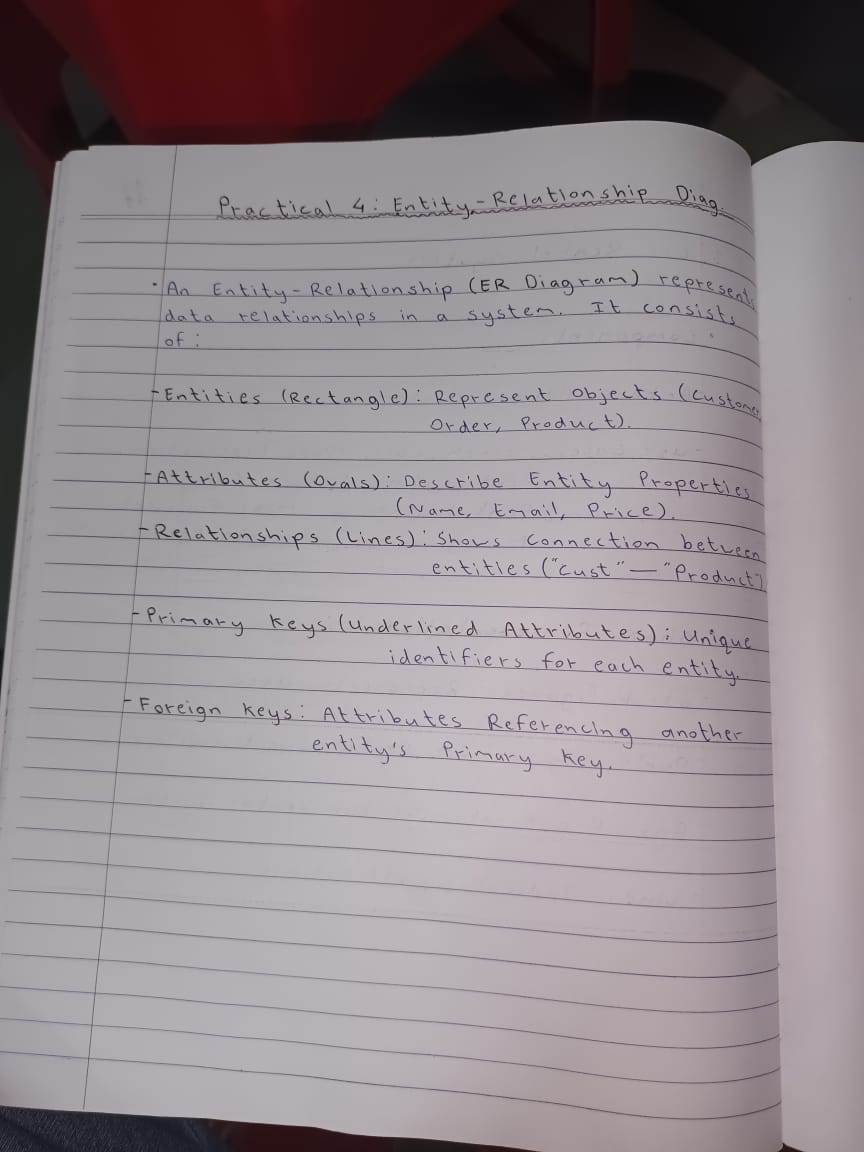 Practical 4: Entity-Relationship Diag.
· An Entity-Relationship (ER Diagram) represents
data relationships in a system. It consists
of:
- Entities (Rectangle): Represent Objects (Customer,
Order, Product).
- Attributes (Ovals): Describe Entity Properties
(Name, Email, Price).
- Relationships (Lines): Shows connection between
entities ("Cust" — "Product")
- Primary Keys (Underlined Attributes): Unique
identifiers for each entity.
- Foreign Keys: Attributes Referencing another
entity's Primary Key.